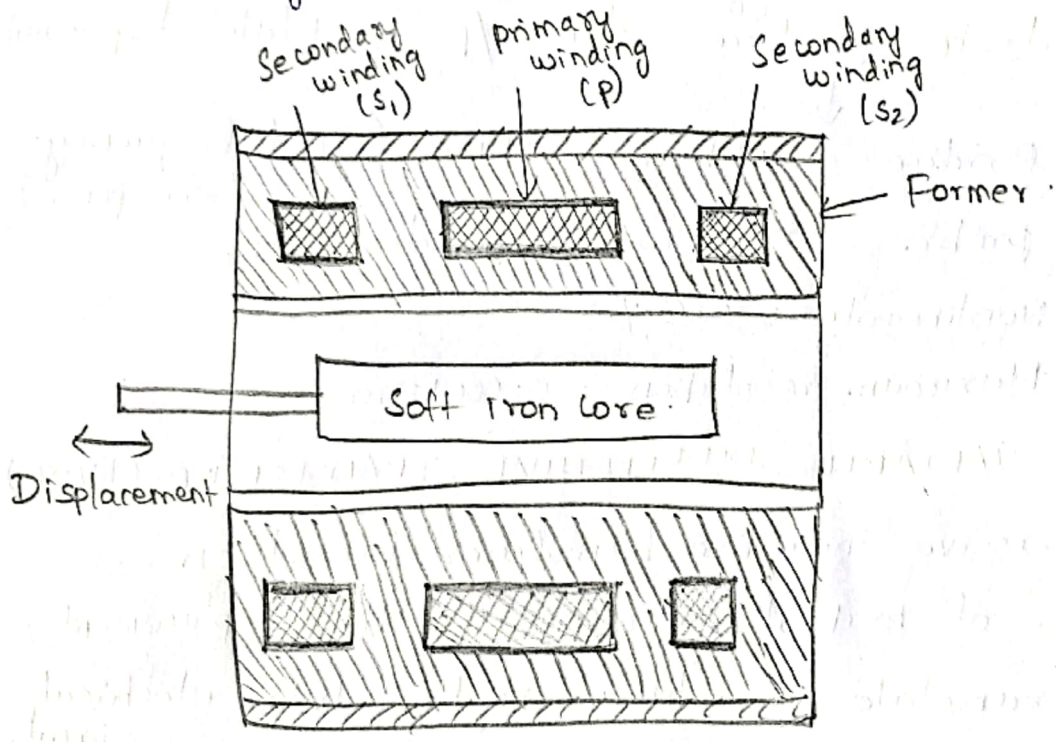 Secondary
winding
(S1)
primary
winding
(P)
Secondary
winding
(S2)
Former.
Soft iron core.
Displacement